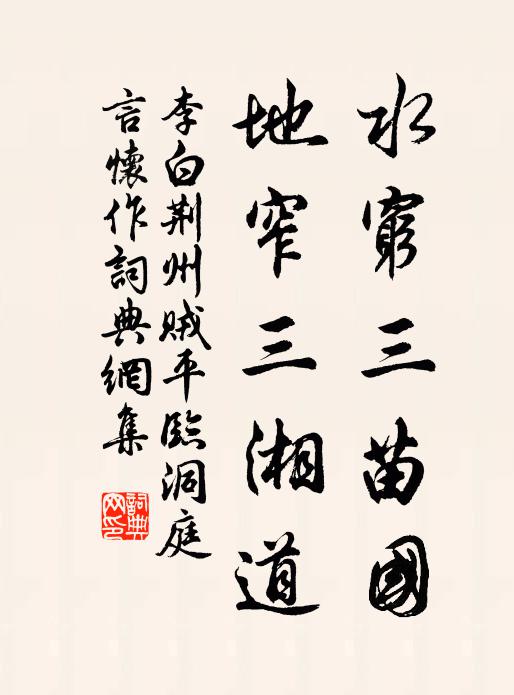 水窮三苗國
地窄三湘道
李白荆州贼平臨洞庭
言懷作詞典網集
詞典
网印